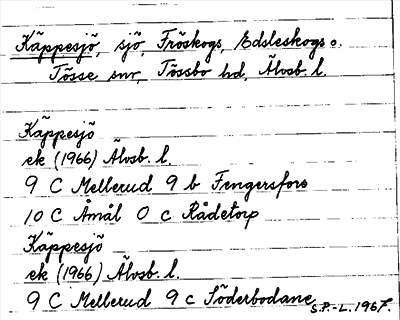 Käppesjö, sjö, Fröskogs, Edsleskogs o.
Tösse snr, Tössbo hd, Älvsb. l.
Käppesjö
ek (1966) Älvsb. l.
9 C Mellerud 9 b Fengersfors
10 C Åmål 0 c Rådetorp
Käppesjö
ek (1966) Älvsb. l.
9 C Mellerud 9 c Söderbodane
S.P.-L. 1967.